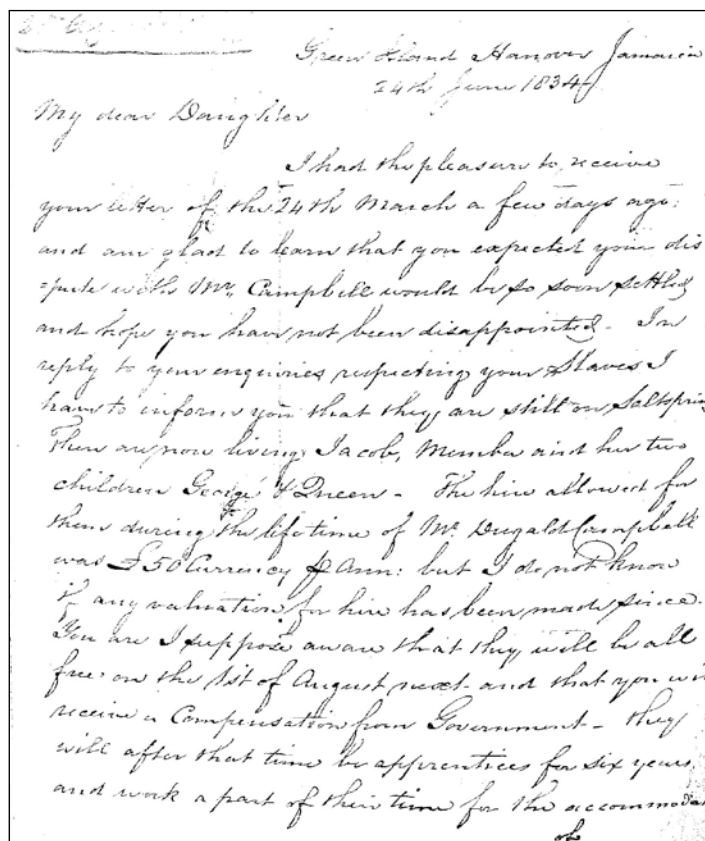 Green Island Hanover Jamaica
24th June 1834
My dear Daughter
I had the pleasure to receive
your letter of the 24th March a few days ago:
and am glad to learn that you expected your dis
=pute with Mr. Campbell would be so soon settled
and hope you have not been disappointed. In
reply to your enquiries respecting your Slaves I
have to inform you that they are still on Saltspring
There are now living Jacob, Memba and her two
children George & Queen - The hire allowed for
them during the lifetime of Mr. Dugald Campbell
was £50 Currency Ann: but I do not know
if any valuation for hire has been made since.
You are I suppose aware that they will be all
free on the 1st of August next and that you wi
receive a Compensation from Government - they
will after that time be apprentices for six years
and work a part of their time for the accommodat
of